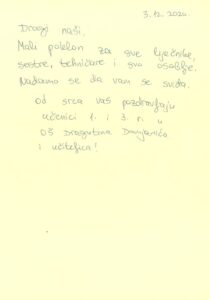 3.12.2020.
Dragi naši,
Mali poklon za sve liječnike,
sestre, tehničare i svo osoblje.
Nadamo se da vam se sviđa.
Od srca vas pozdravljaju
učenici 1. i 3. r. iz
OŠ Dragutina Domjanića
i učiteljica!